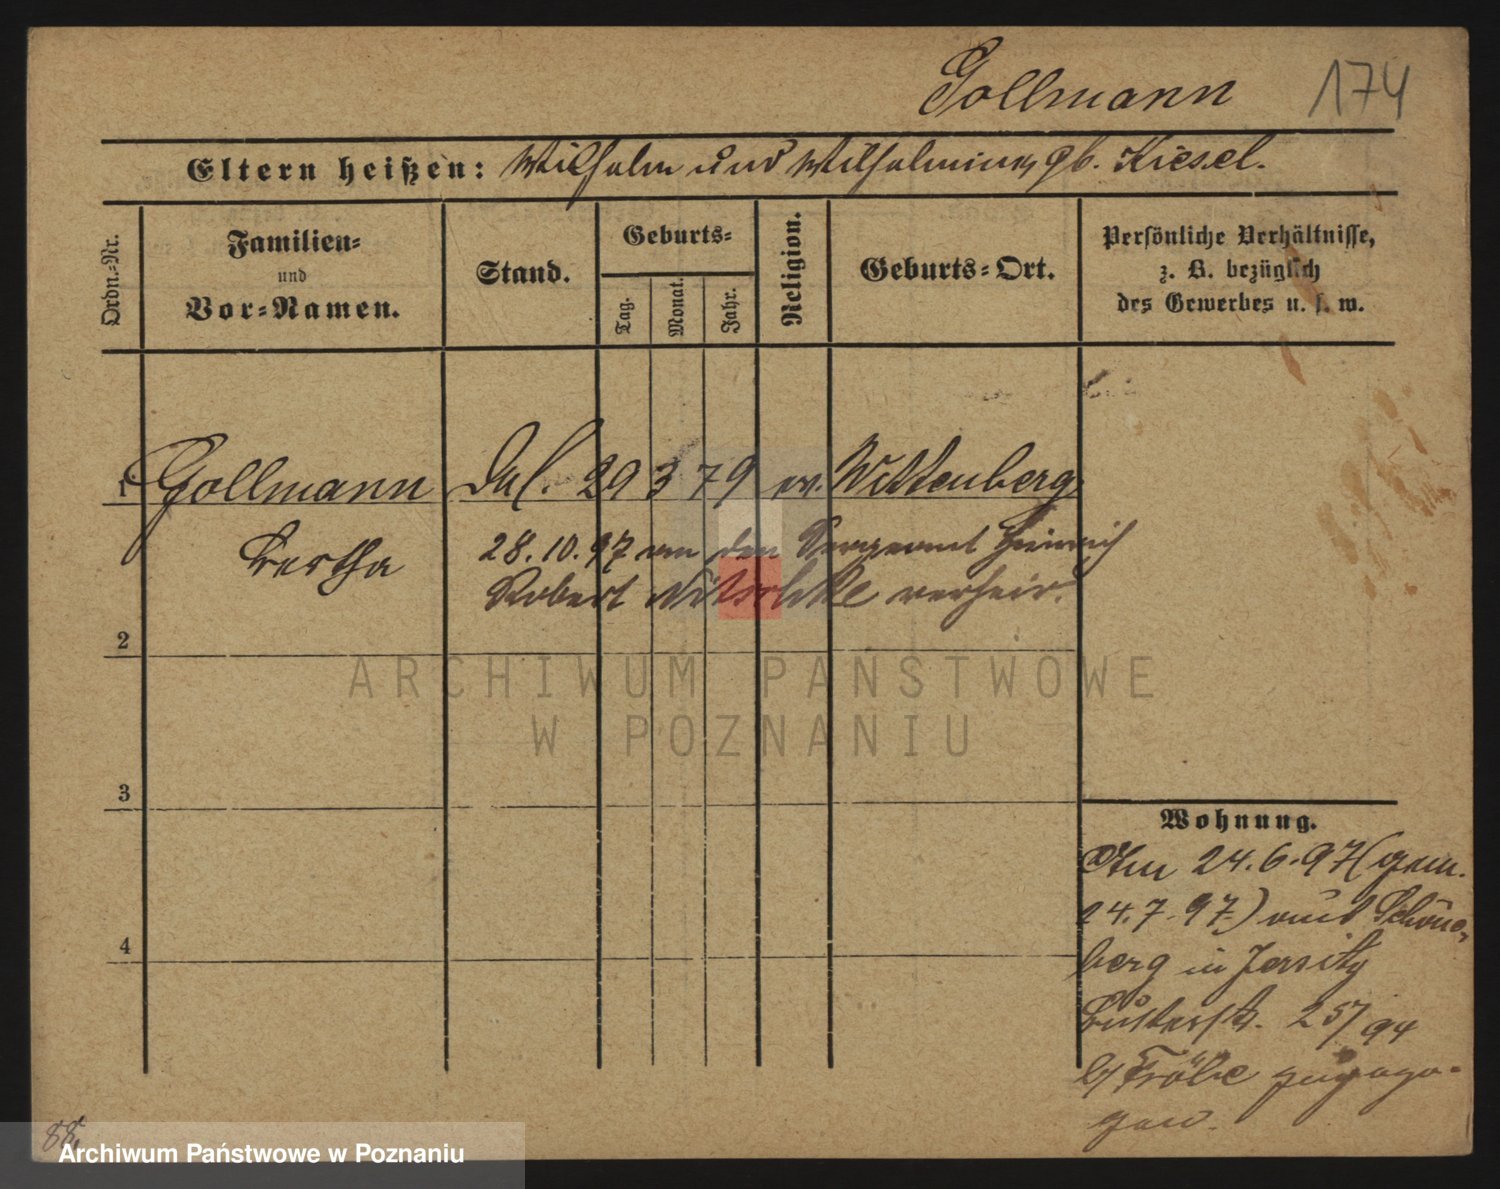 Gollmann 174
Eltern heißen: Wilhelm und Wilhelmine gb. Kiesel.
Ordn.-Nr.
Familien-
und
Vor-Namen.
Stand.
Geburts-
Tag.
Monat.
Jahr.
Religion.
Geburts-Ort.
Persönliche Verhältnisse,
z. B. bezüglich
des Gewerbes u. s. w.
1 Gollmann 29 3 79 ev. Wittenberg
Bertha
28.10.97 an den Sergeant Heinrich
Robert Nitschke verheir.
2
ARCHIWUM PAŃSTWOWE
W POZNANIU
3
4
Wohnung.
Am 24.6.97 (gem.
24.7.97) aus Schöne-
berg in Jersitz
25/94
b/ Fröhe zugezo-
gen.
88.
Archiwum Państwowe w Poznaniu